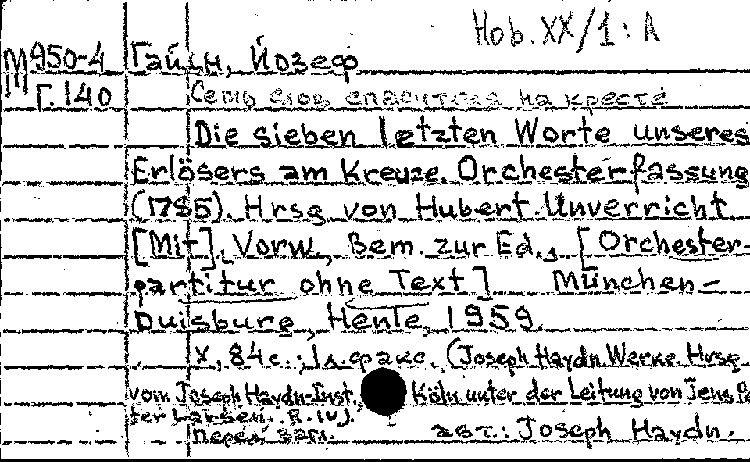 Hob. XX/1: A
М950-4 Гайдн, Йозеф
Г. 140 Семь слов спасителя на кресте
Die sieben letzten Worte unseres
Erlösers am Kreuze. Orchesterfassung
(1785). Hrsg. von Hubert Unverricht
[Mit] Vorw., Bem. zur Ed., [Orchester-
partitur ohne Text]. München-
Duisburg, Henle, 1959.
X, 84 с.; 1 л. факс. (Joseph Haydn Werke. Hrsg.
vom Joseph Haydn-Inst., Köln unter der Leitung von Jens Pe-
ter Larsen. R. IV).
Перед загл. авт.: Joseph Haydn.